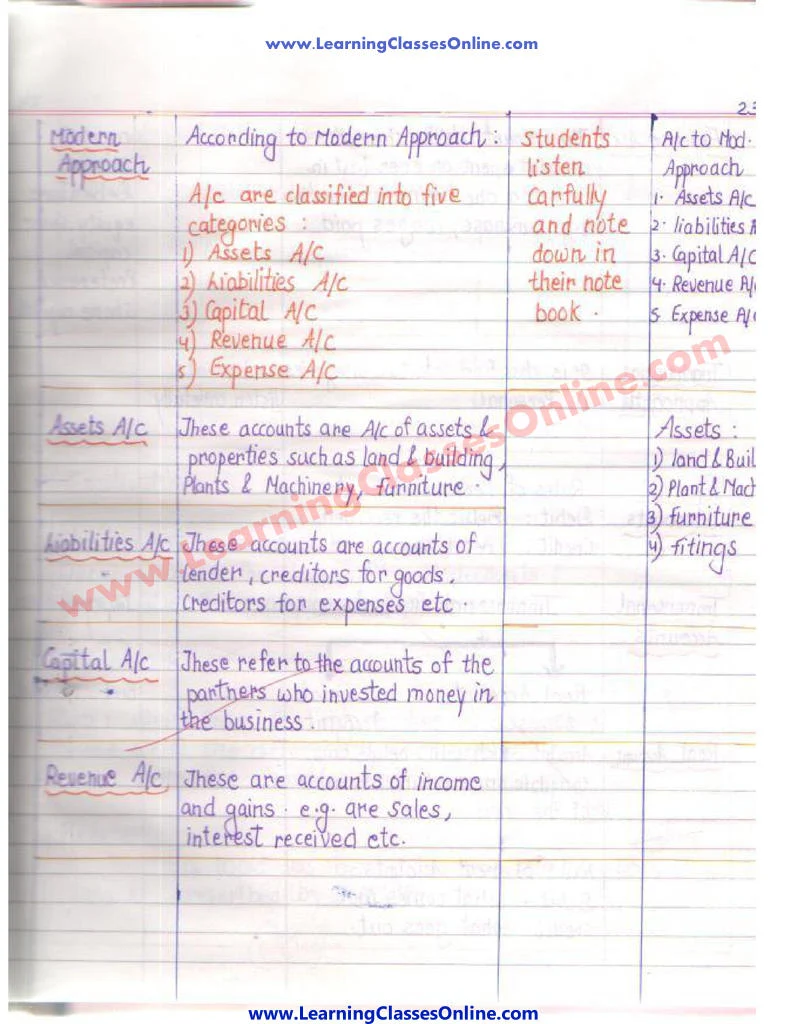 www.LearningClassesOnline.com
23
Modern
Approach
According to Modern Approach :
A/c are classified into five
categories :
1) Assets A/C
2) Liabilities A/C
3) Capital A/C
4) Revenue A/C
5) Expense A/C
Students
listen
carfully
and note
down in
their note
book .
A/c to Mod.
Approach
1. Assets A/C
2. liabilities A
3. Capital A/C
4. Revenue A/
5 Expense A/C
Assets A/c
These accounts are A/c of assets &
properties such as land & building,
Plants & Machinery, furniture .
Assets :
1) land & Buil
2) Plant & Mach
3) furniture
4) fitings
Liabilities A/c
These accounts are accounts of
lender, creditors for goods,
Creditors for expenses etc .
Capital A/c
These refer to the accounts of the
partners who invested money in
the business .
Revenue A/c
These are accounts of income
and gains . e.g. are sales,
interest received etc.
www.LearningClassesOnline.com
www.LearningClassesOnline.com